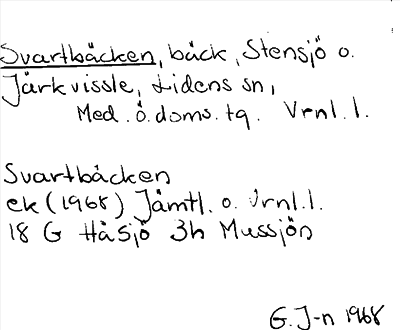 Svartbäcken, bäck, Stensjö o.
Järkvissle, Lidens sn,
Med. ö. doms. tg. Vrnl. l.
Svartbäcken
ek (1968) Jämtl. o. Vrnl. l.
18 G Håsjö 3h Mussjön
G. J-n 1968